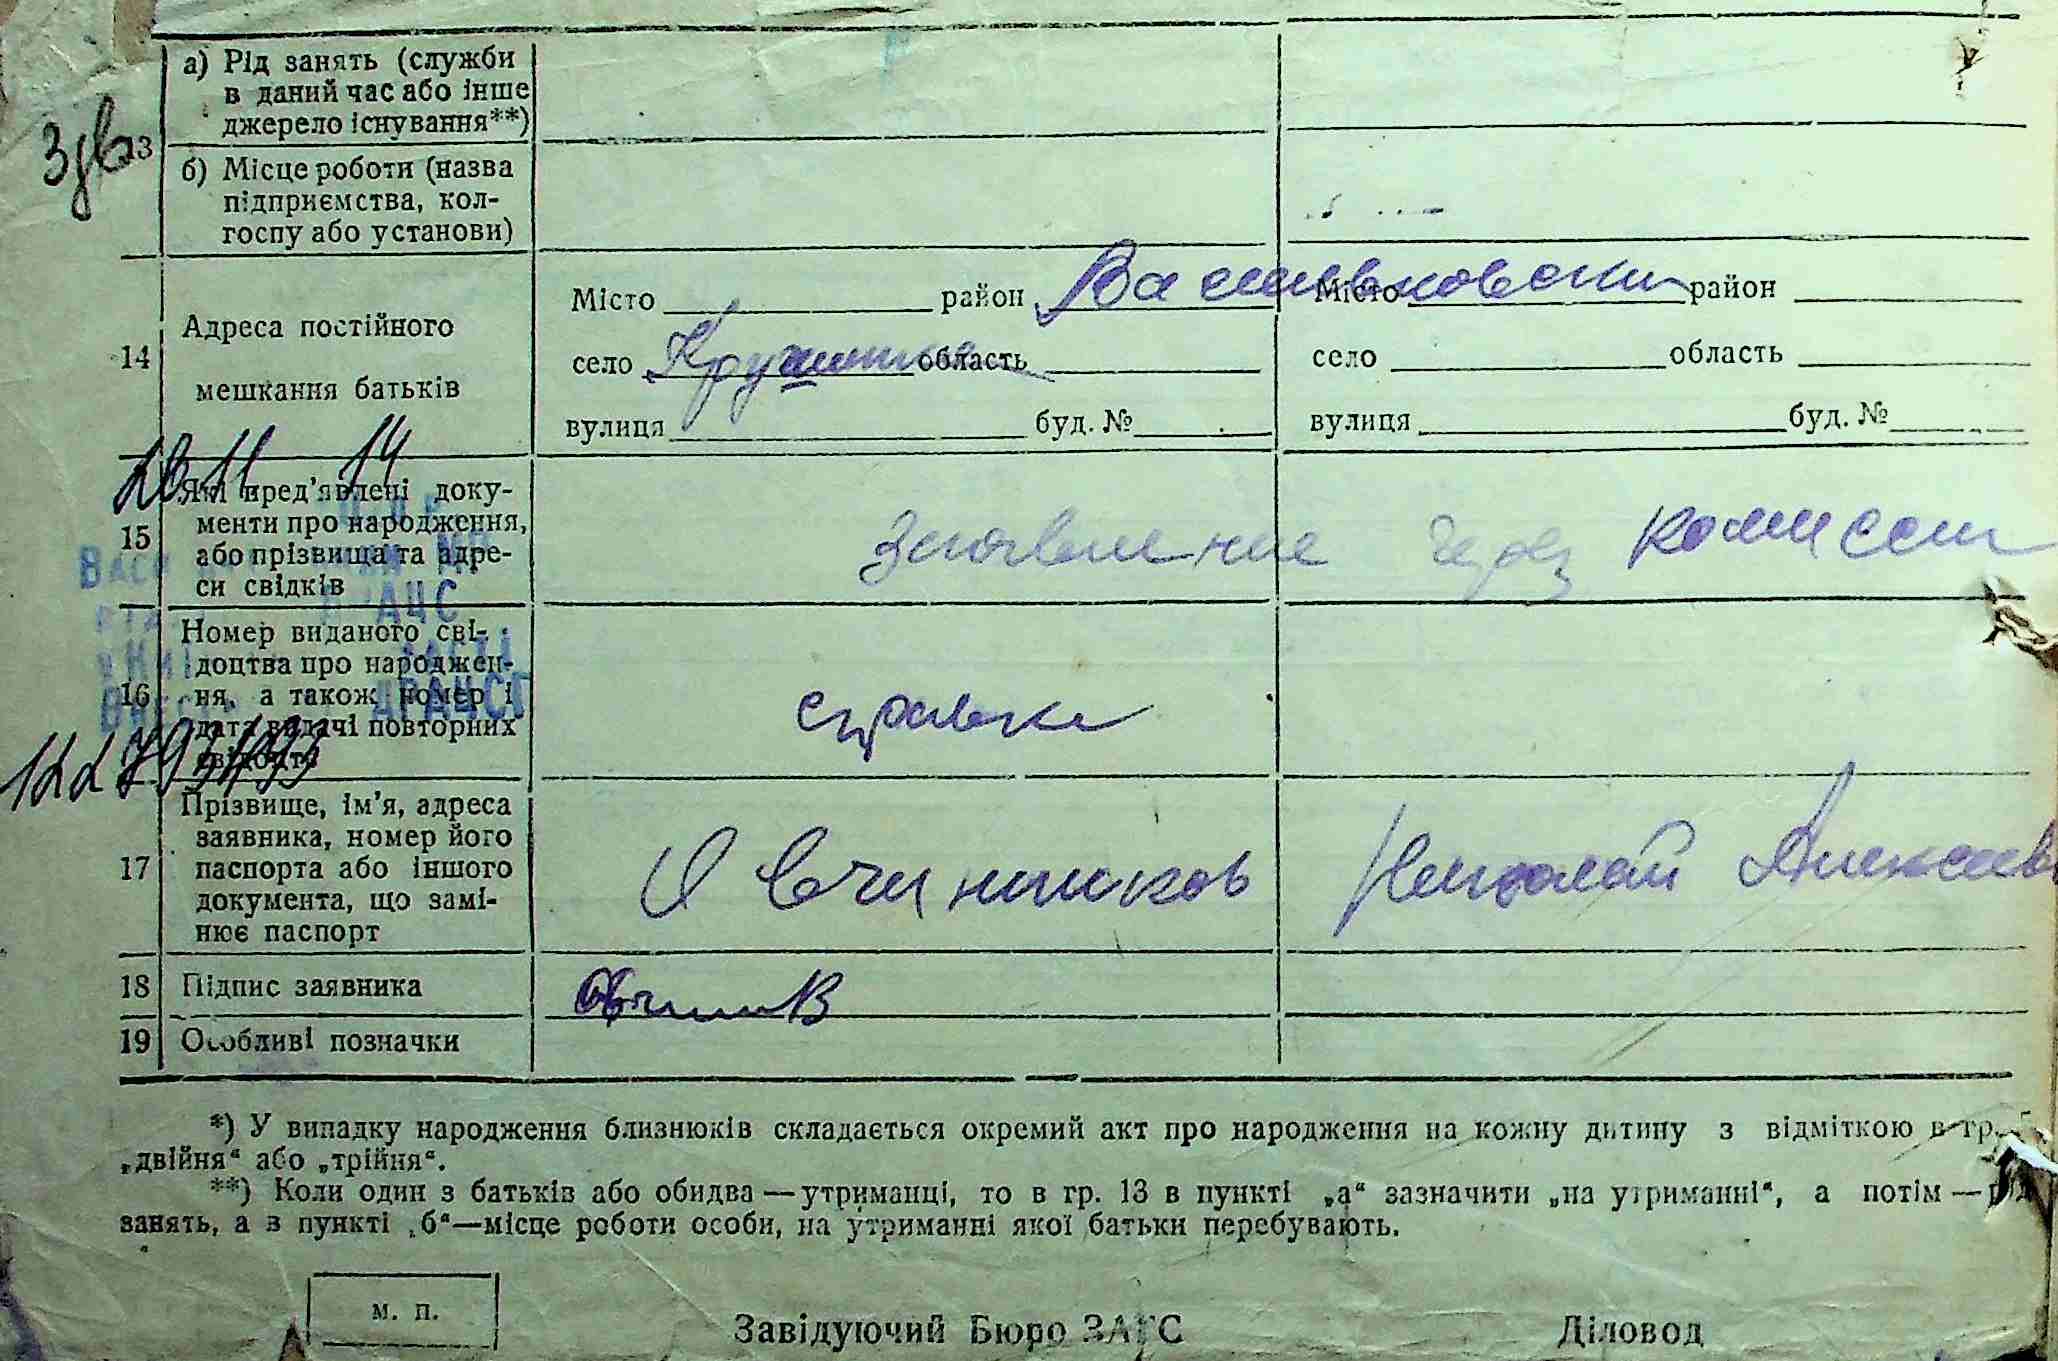 а) Рід занять (служби
в даний час або інше
джерело існування**)
13
б) Місце роботи (назва
підприємства, кол-
госпу або установи)
14
Адреса постійного
мешкання батьків
Місто район Васильковский
село Кручинка область
вулиця буд. №
Місто район
село область
вулиця буд. №
20 11 14
15
Які пред'явлені доку-
менти про народження,
або прізвища та адре-
си свідків
Заявление через комисси
16
Номер виданого сві-
доцтва про народжен-
ня, а також номер і
дата видачі повторних
свідоцтв
справка
17
Прізвище, ім'я, адреса
заявника, номер його
паспорта або іншого
документа, що замі-
нює паспорт
Овчинников Николай Алексеев
18 Підпис заявника
19 Особливі позначки
*) У випадку народження близнюків складається окремий акт про народження на кожну дитину з відміткою в гр.
„двійня“ або „трійня“.
**) Коли один з батьків або обидва—утриманці, то в гр. 13 в пункті „а“ зазначити „на утриманні“, а потім—рід
занять, а в пункті „б“—місце роботи особи, на утриманні якої батьки перебувають.
м. п.
Завідуючий Бюро ЗАГС
Діловод